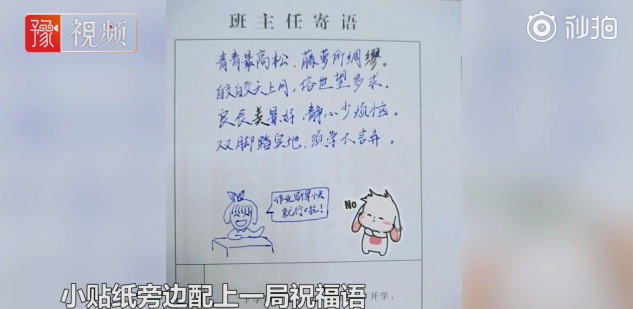 豫视频
秒拍
班主任寄语
青青最高松，藤萝所绸缪。
皎皎天上月，俗世望多求。
良辰美景好，静心少烦恼。
双脚踏实地，须学不言弃。
作业
就行啦！
No
开学，
小贴纸旁边配上一局祝福语